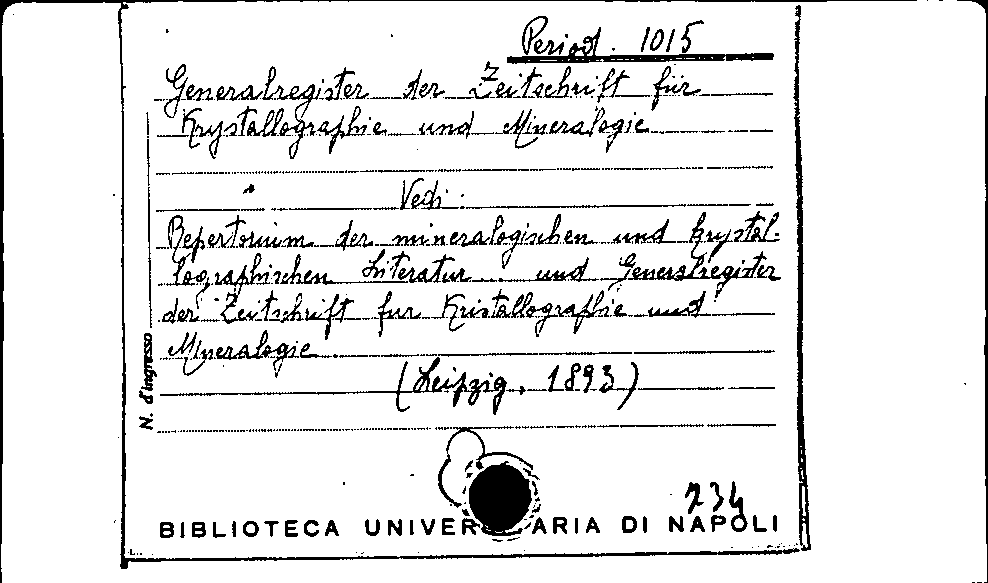 Period. 1015
Generalregister der Zeitschrift für
Krystallographie und Mineralogie
Vedi:
Repertorium der mineralogischen und krystal-
lographischen Literatur... und Generalregister
der Zeitschrift fur Kristallographie und
Mineralogie.
(Leipzig, 1893)
N. d'ingresso
234
BIBLIOTECA UNIVER ARIA DI NAPOLI